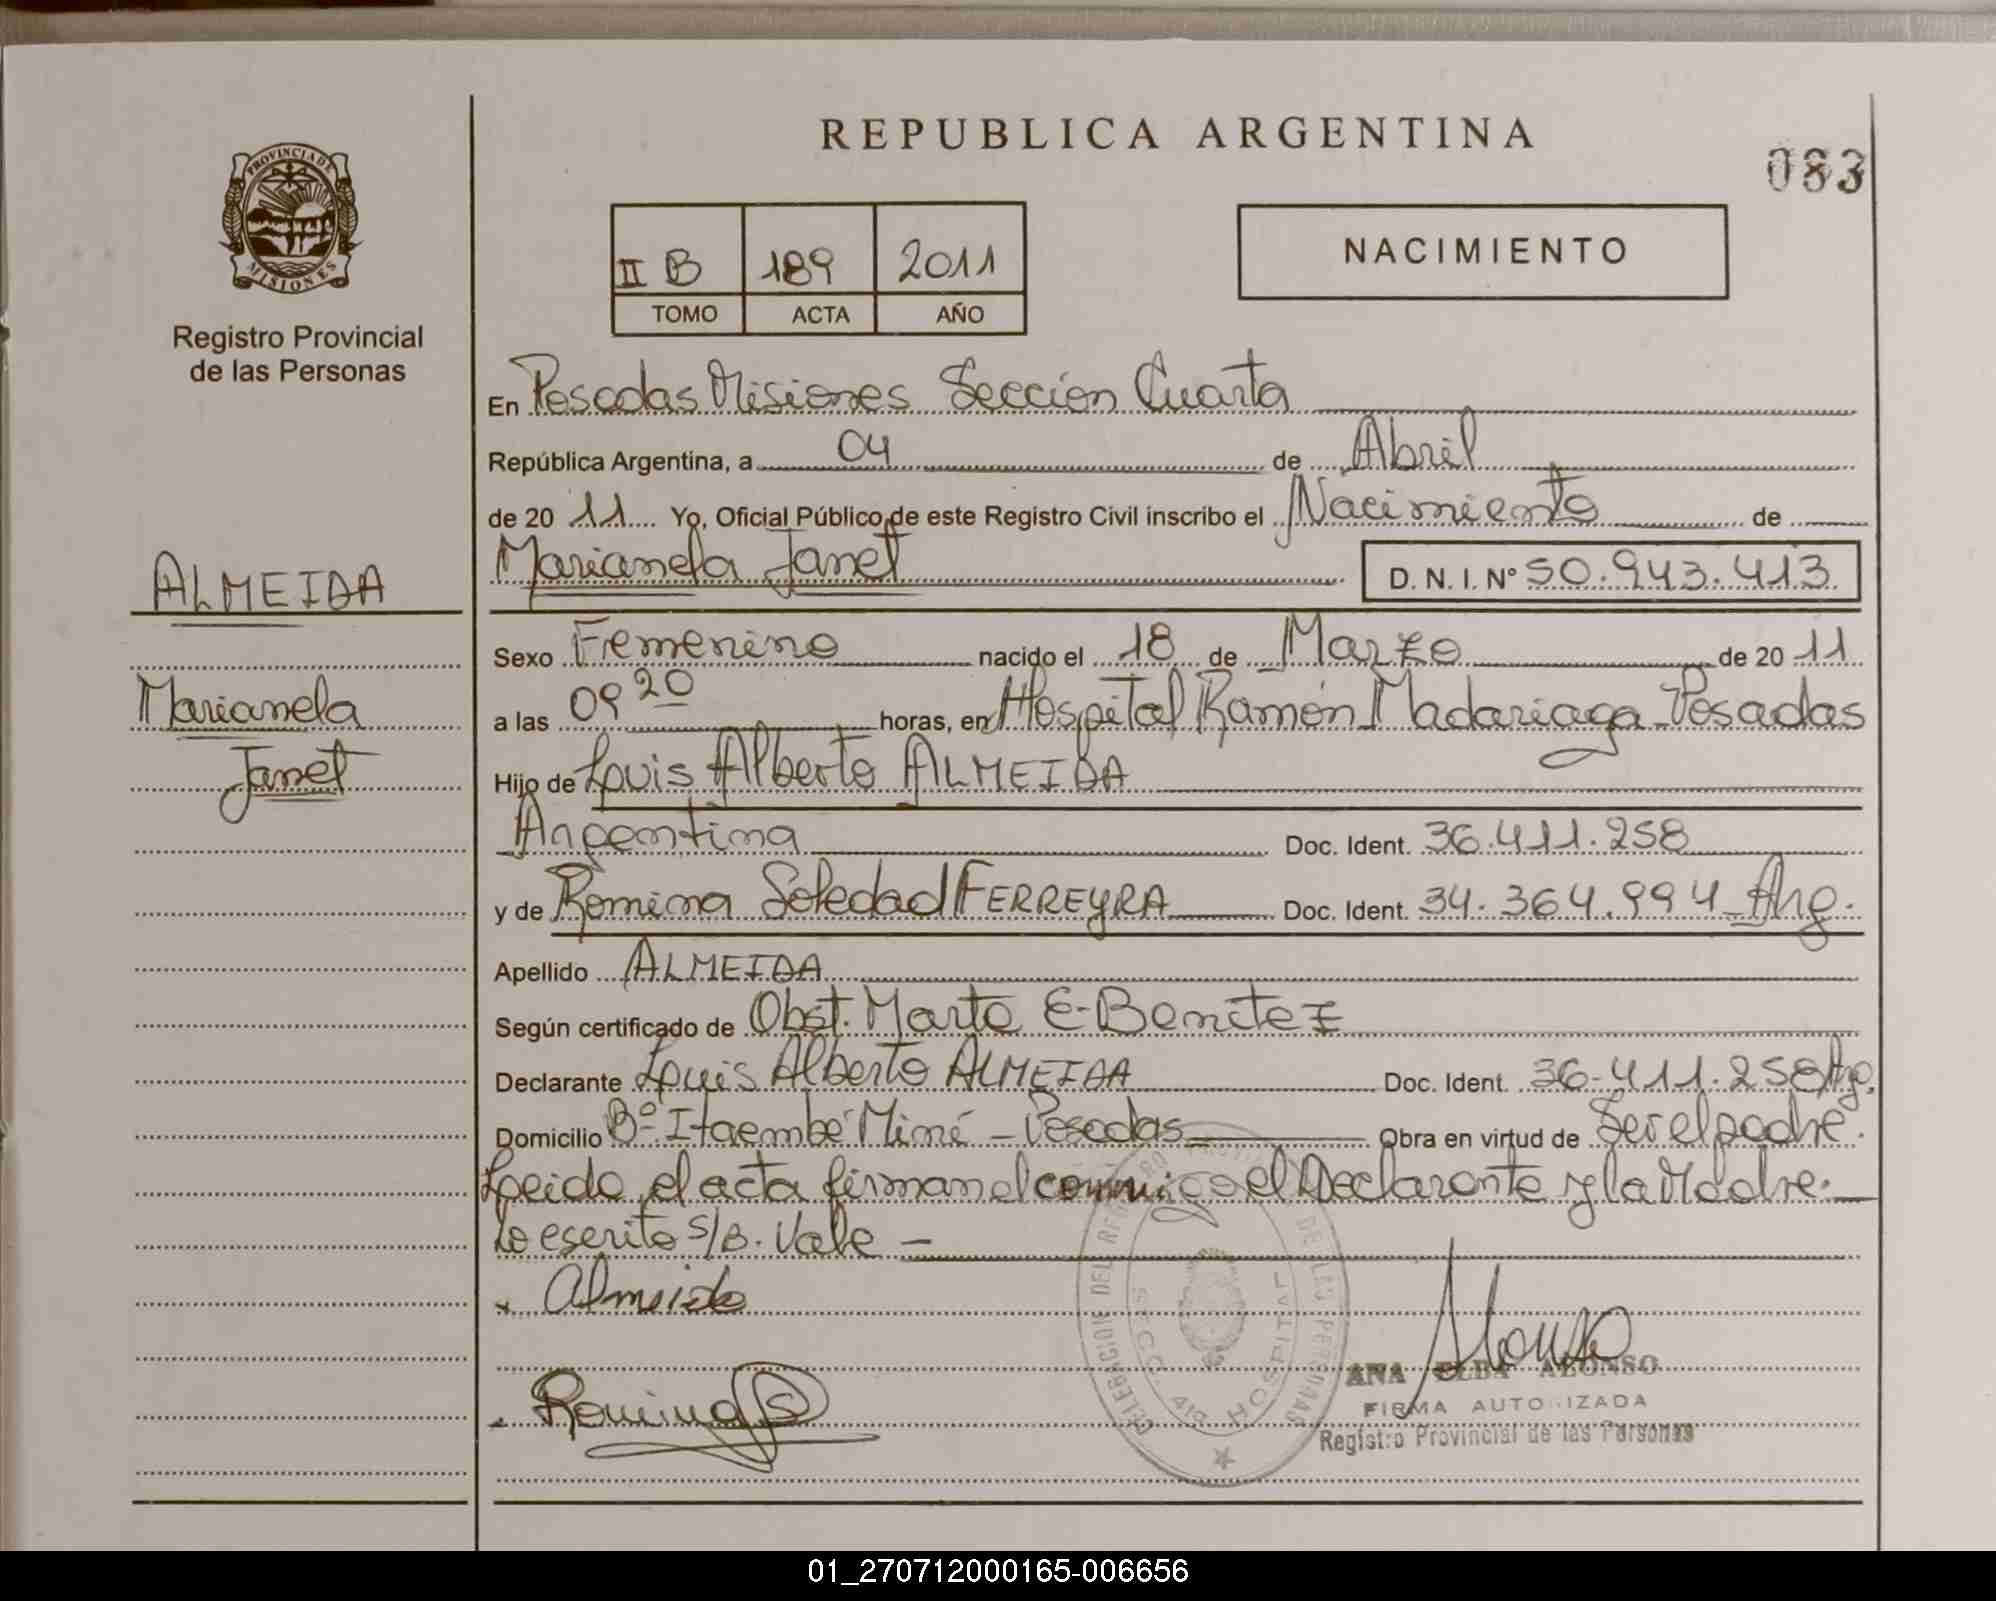 REPUBLICA ARGENTINA
083
PROVINCIA DE MISIONES
Registro Provincial
de las Personas
II B 189 2011
TOMO ACTA AÑO
NACIMIENTO
En Posadas Misiones Sección Cuarta
República Argentina, a 04 de Abril
de 20 11 Yo, Oficial Público de este Registro Civil inscribo el Nacimiento de
Marianela Janet D. N. I. Nº 50.943.413
ALMEIDA
Marianela
Janet
Sexo Femenino nacido el 18 de Marzo de 20 11
a las 09 20 horas, en Hospital Ramón Madariaga-Posadas
Hijo de Luis Alberto ALMEIDA
Argentina Doc. Ident. 36.411.258
y de Romina Soledad FERREYRA Doc. Ident. 34.364.994 Arg.
Apellido ALMEIDA
Según certificado de Obst. Marta E. Benitez
Declarante Luis Alberto ALMEIDA Doc. Ident. 36.411.258 Arg.
Domicilio Bº Itaembé Miní - Posadas Obra en virtud de Ser el padre.
Leida el acta firman conmigo el Declarante y la Madre.
Lo escrito s/B. Vale -
Almeida
Romina
Alonso
ANA ELBA ALONSO
FIRMA AUTORIZADA
Registro Provincial de las Personas
DELEGACION DEL REGISTRO PROVINCIAL DE LAS PERSONAS
SECC. 4ta HOSPITAL
01_270712000165-006656